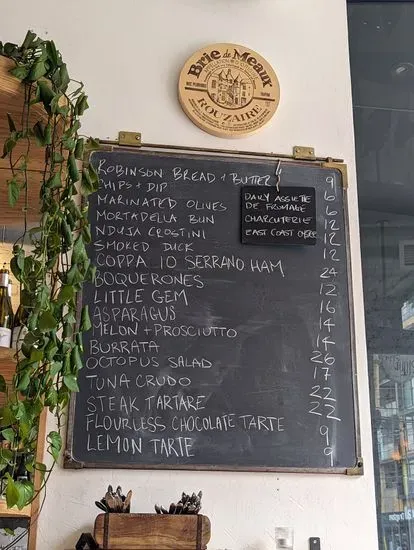 Brie de Meaux
ROUZAIRE
ROBINSON BREAD + BUTTER 9
CHIPS + DIP 6
MARINATED OLIVES 6
MORTADELLA BUN 12
NDUJA CROSTINI 12
SMOKED DUCK 12
COPPA 10 SERRANO HAM 24
BOQUERONES 12
LITTLE GEM 16
ASPARAGUS 14
MELON + PROSCIUTTO 14
BURRATA 26
OCTOPUS SALAD 17
TUNA CRUDO 22
STEAK TARTARE 22
FLOURLESS CHOCOLATE TARTE 9
LEMON TARTE 9
DAILY ASSIETTE
DE FROMAGE
CHARCUTERIE
EAST COAST